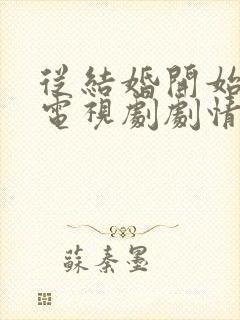 從結婚開始
電視劇劇情
蘇秦墨